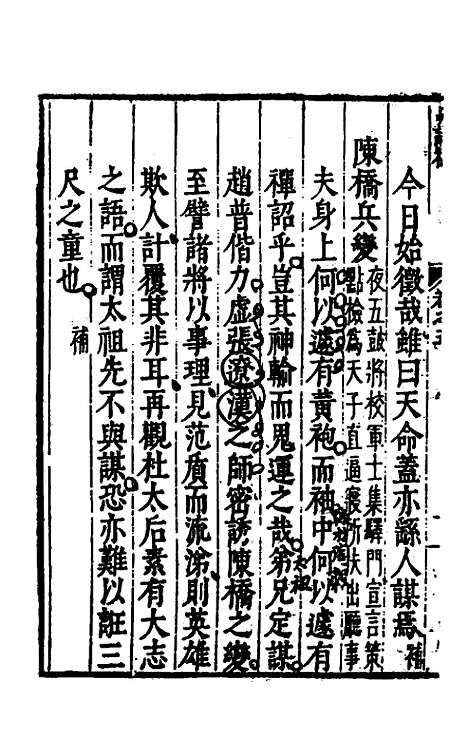 今日始徵哉雖曰天命蓋亦繇人謀焉補
陳橋兵變
夜五鼓將校軍士集驛門宣言策
點檢為天子直逼寢所扶出聽事
夫身上何以遽有黃袍而袖中何以遽有
禪詔乎豈其神輸而鬼運之哉弟兄定謀
趙普偕力虛張遼漢之師密誘陳橋之變
至譬諸將以事理見范質而流涕則英雄
欺人計覆其非耳再觀杜太后素有大志
之語而謂太祖先不與謀恐亦難以誑三
尺之童也補